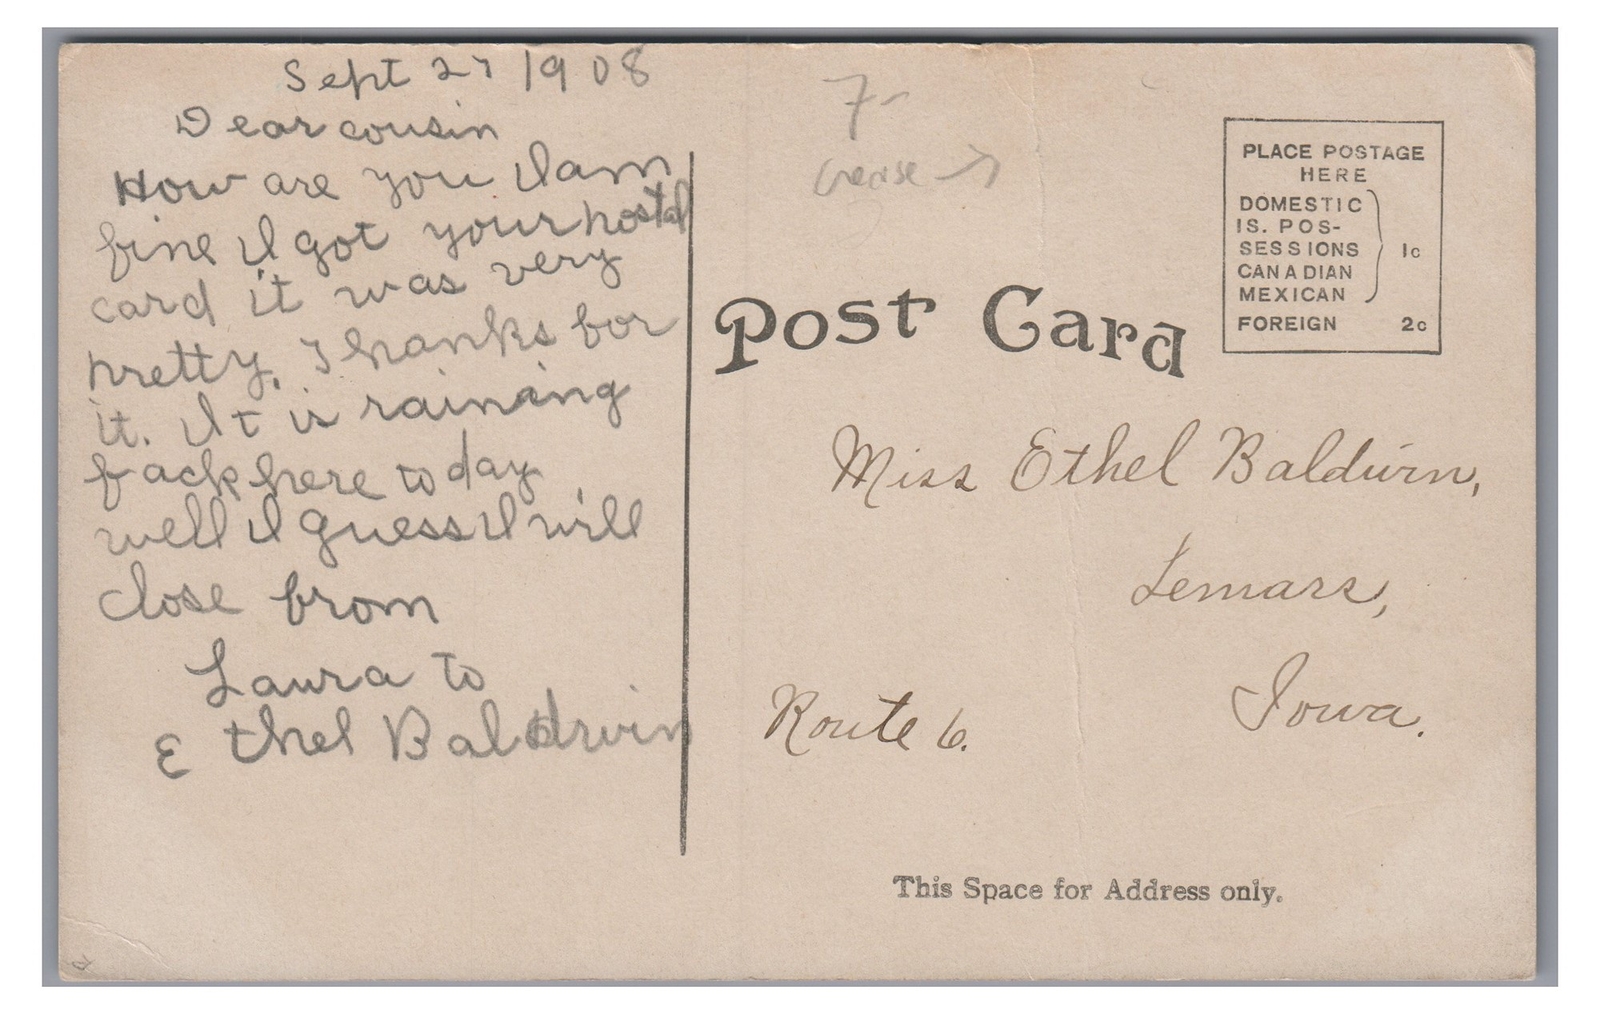 Sept 27 1908
Dear cousin
How are you I am
fine I got your postal
card it was very
pretty. Thanks for
it. It is raining
back here today
well I guess I will
close from
Laura to
Ethel Baldwin
7-
crease →
PLACE POSTAGE
HERE
DOMESTIC
IS. POS-
SESSIONS
CANADIAN
MEXICAN
1c
FOREIGN 2c
Post Card
Miss Ethel Baldwin,
Lemars,
Iowa.
Route 6.
This Space for Address only.